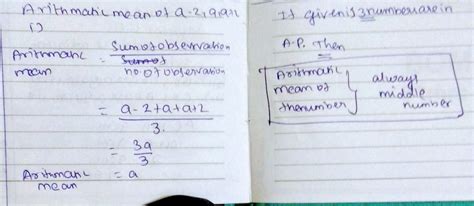 Arithmatic mean of a-2, a, a+2
is
Arithmatic mean = Sum of observation / no. of observation
= a-2+a+a+2 / 3.
= 3a / 3
Arithmatic mean = a
If given is 3 number are in
A.P. Then
Arithmatic mean of the number } always middle number